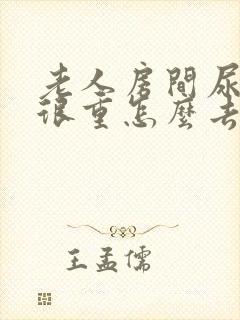 老人房間尿
很重怎麼去
王孟儒